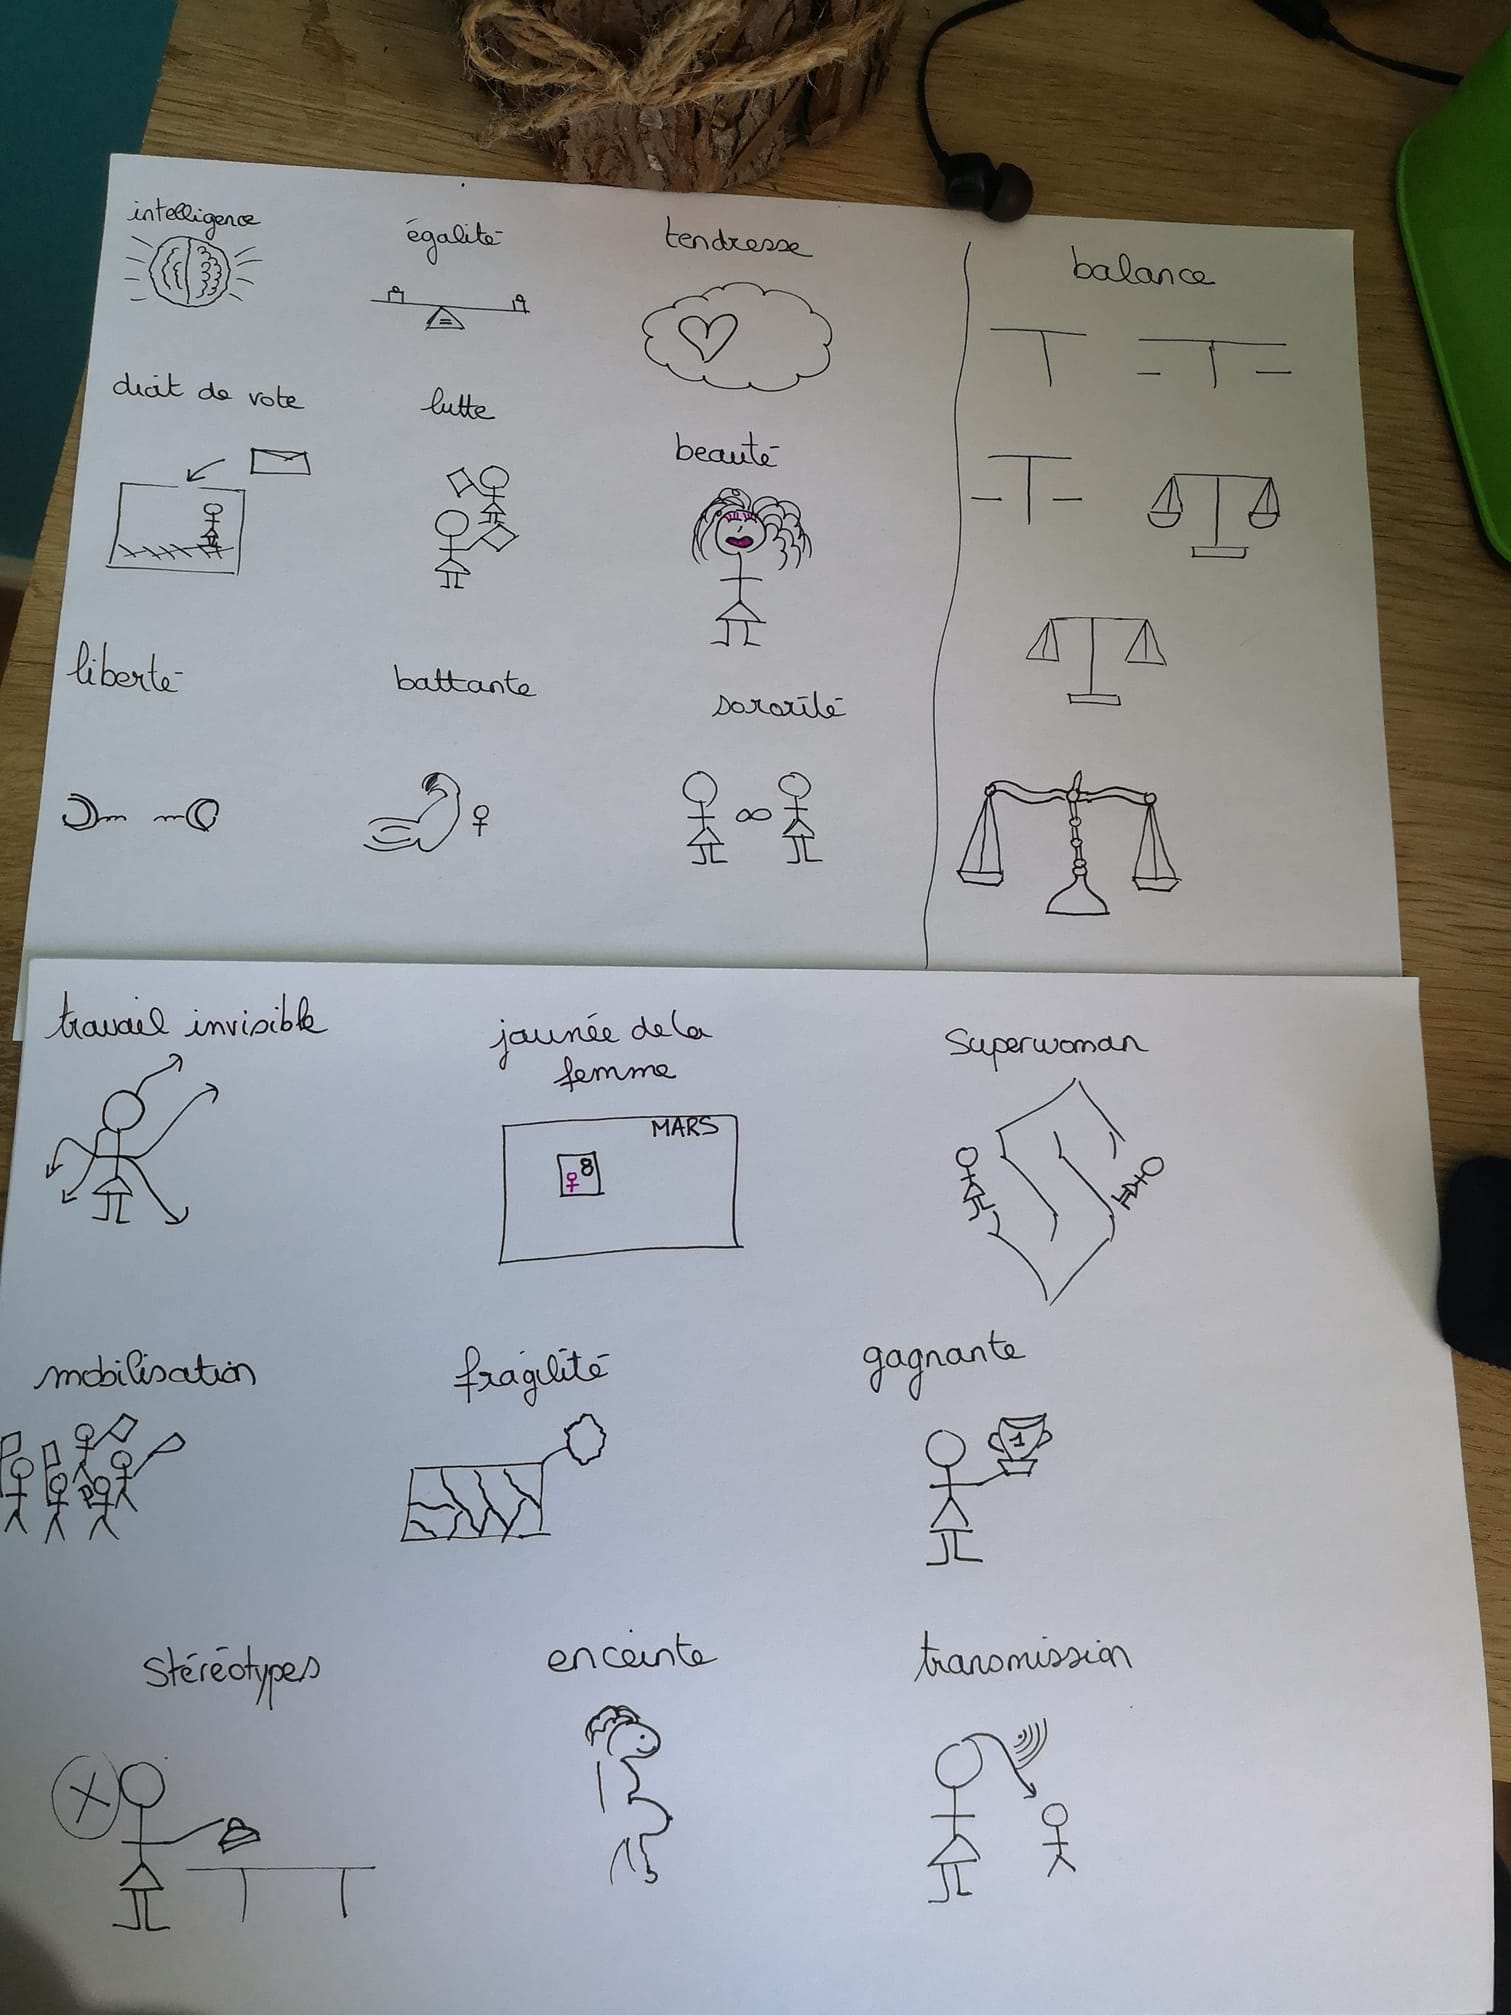 intelligence
égalité
tendresse
balance
droit de vote
lutte
beauté
liberté
battante
sororité
travail invisible
journée de la
femme
MARS
8
Superwoman
mobilisation
fragilité
gagnante
1
stéréotypes
enceinte
transmission